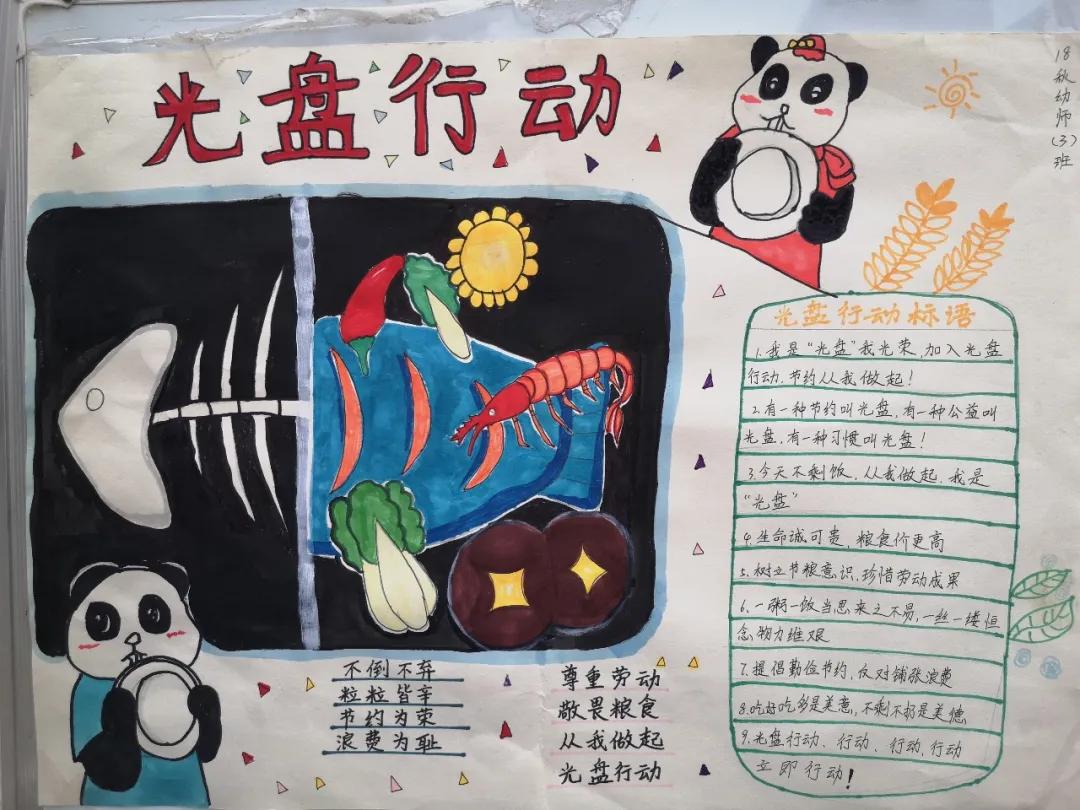 光盘行动
18秋幼师(3)班
光盘行动标语
1.我是“光盘”我光荣,加入光盘
行动,节约从我做起!
2.有一种节约叫光盘,有一种公益叫
光盘,有一种习惯叫光盘!
3.今天不剩饭,从我做起,我是
“光盘”
4.生命诚可贵,粮食价更高
5.树立节粮意识,珍惜劳动成果
6.一粥一饭当思来之不易,一丝一缕恒
念物力维艰
7.提倡勤俭节约,反对铺张浪费
8.吃好吃多是美意,不剩不扔是美德
9.光盘行动、行动、行动,行动
立即行动!
不倒不弃
粒粒皆辛
节约为荣
浪费为耻
尊重劳动
敬畏粮食
从我做起
光盘行动